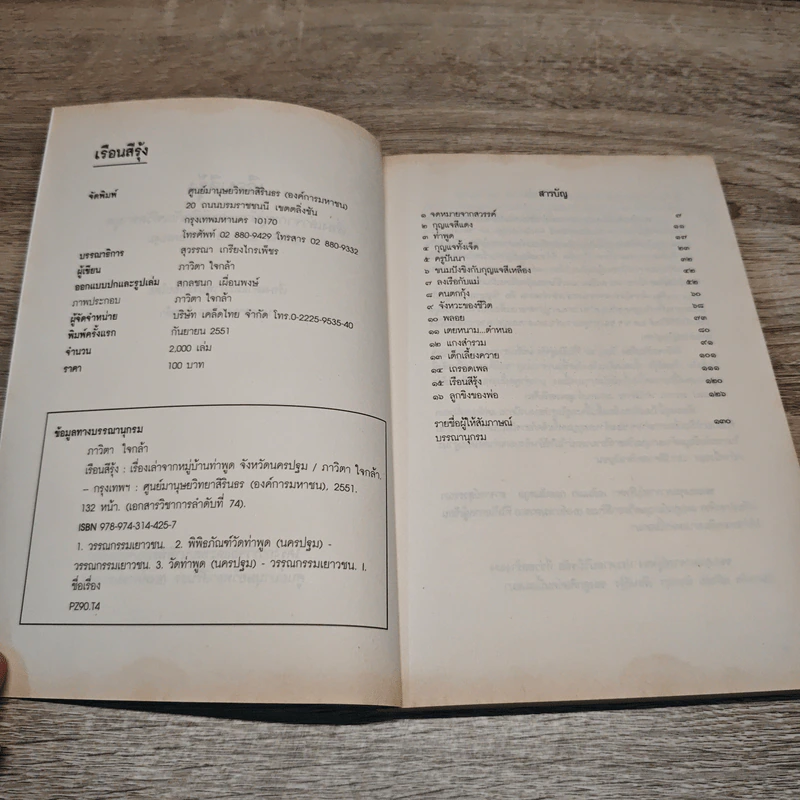 เรือนสีรุ้ง
จัดพิมพ์ ศูนย์มานุษยวิทยาสิรินธร (องค์การมหาชน)
20 ถนนบรมราชชนนี เขตตลิ่งชัน
กรุงเทพมหานคร 10170
โทรศัพท์ 02 880-9429 โทรสาร 02 880-9332
บรรณาธิการ สุวรรณา เกรียงไกรเพ็ชร
ผู้เขียน ภาวิตา ใจกล้า
ออกแบบปกและรูปเล่ม สกลชนก เผื่อนพงษ์
ภาพประกอบ ภาวิตา ใจกล้า
ผู้จัดจำหน่าย บริษัท เคล็ดไทย จำกัด โทร.0-2225-9535-40
พิมพ์ครั้งแรก กันยายน 2551
จำนวน 2,000 เล่ม
ราคา 100 บาท
ข้อมูลทางบรรณานุกรม
ภาวิตา ใจกล้า
เรือนสีรุ้ง : เรื่องเล่าจากหมู่บ้านท่าพูด จังหวัดนครปฐม / ภาวิตา ใจกล้า.
– กรุงเทพฯ : ศูนย์มานุษยวิทยาสิรินธร (องค์การมหาชน), 2551.
132 หน้า. (เอกสารวิชาการลำดับที่ 74).
ISBN 978-974-314-425-7
1. วรรณกรรมเยาวชน. 2. พิพิธภัณฑ์วัดท่าพูด (นครปฐม) -
วรรณกรรมเยาวชน. 3. วัดท่าพูด (นครปฐม) - วรรณกรรมเยาวชน. I.
ชื่อเรื่อง
PZ90.T4
สารบัญ
๑ จดหมายจากสวรรค์ ๙
๒ กุญแจสีแดง ๑๑
๓ ท่าพูด ๑๗
๔ กุญแจทั้งเจ็ด ๒๓
๕ ครูปันนา ๓๒
๖ ขนมปังขิงกับกุญแจสีเหลือง ๔๒
๗ ลงเรือกับแม่ ๕๒
๘ คนตกกุ้ง ๖๐
๙ จังหวะของชีวิต ๖๘
๑๐ พลอย ๗๓
๑๑ เตยหนาม...ตำหนอ ๘๐
๑๒ แกงสำรวม ๙๑
๑๓ เด็กเลี้ยงควาย ๑๐๑
๑๔ เถรอดเพล ๑๑๑
๑๕ เรือนสีรุ้ง ๑๒๐
๑๖ ลูกขิงของพ่อ ๑๒๖
รายชื่อผู้ให้สัมภาษณ์ ๑๓๐
บรรณานุกรม